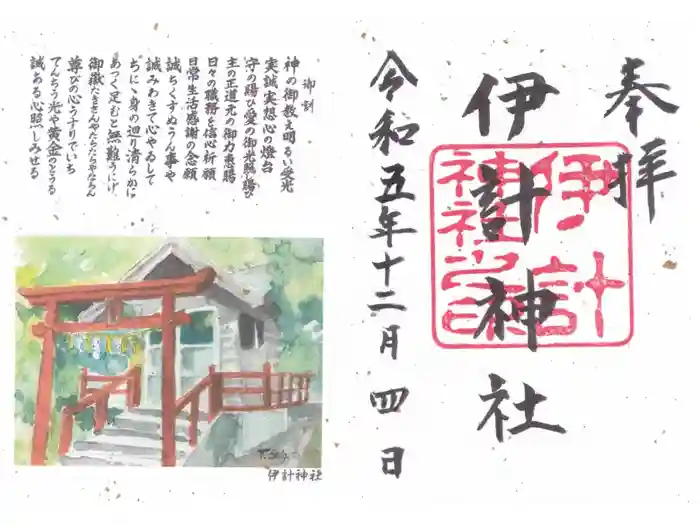 奉拝
伊計神社
伊計
神社之印
令和五年十二月四日
御訓
神の御教え明るい受光
実誠実想心の燈台
守の賜ひ愛の御光賜ひ
主の正道元の御力恵賜
日々の職務を信心祈願
日常生活感謝の念願
誠ちくすぬうん事や
誠みわきて心やゐして
ちにヽ身の廻り清らかに
あつく定むと無難しにげ
尊びの心う手りでいち
てんちう光や黄金のとうる
誠ある心照しみせる
T. Seig.
伊計神社